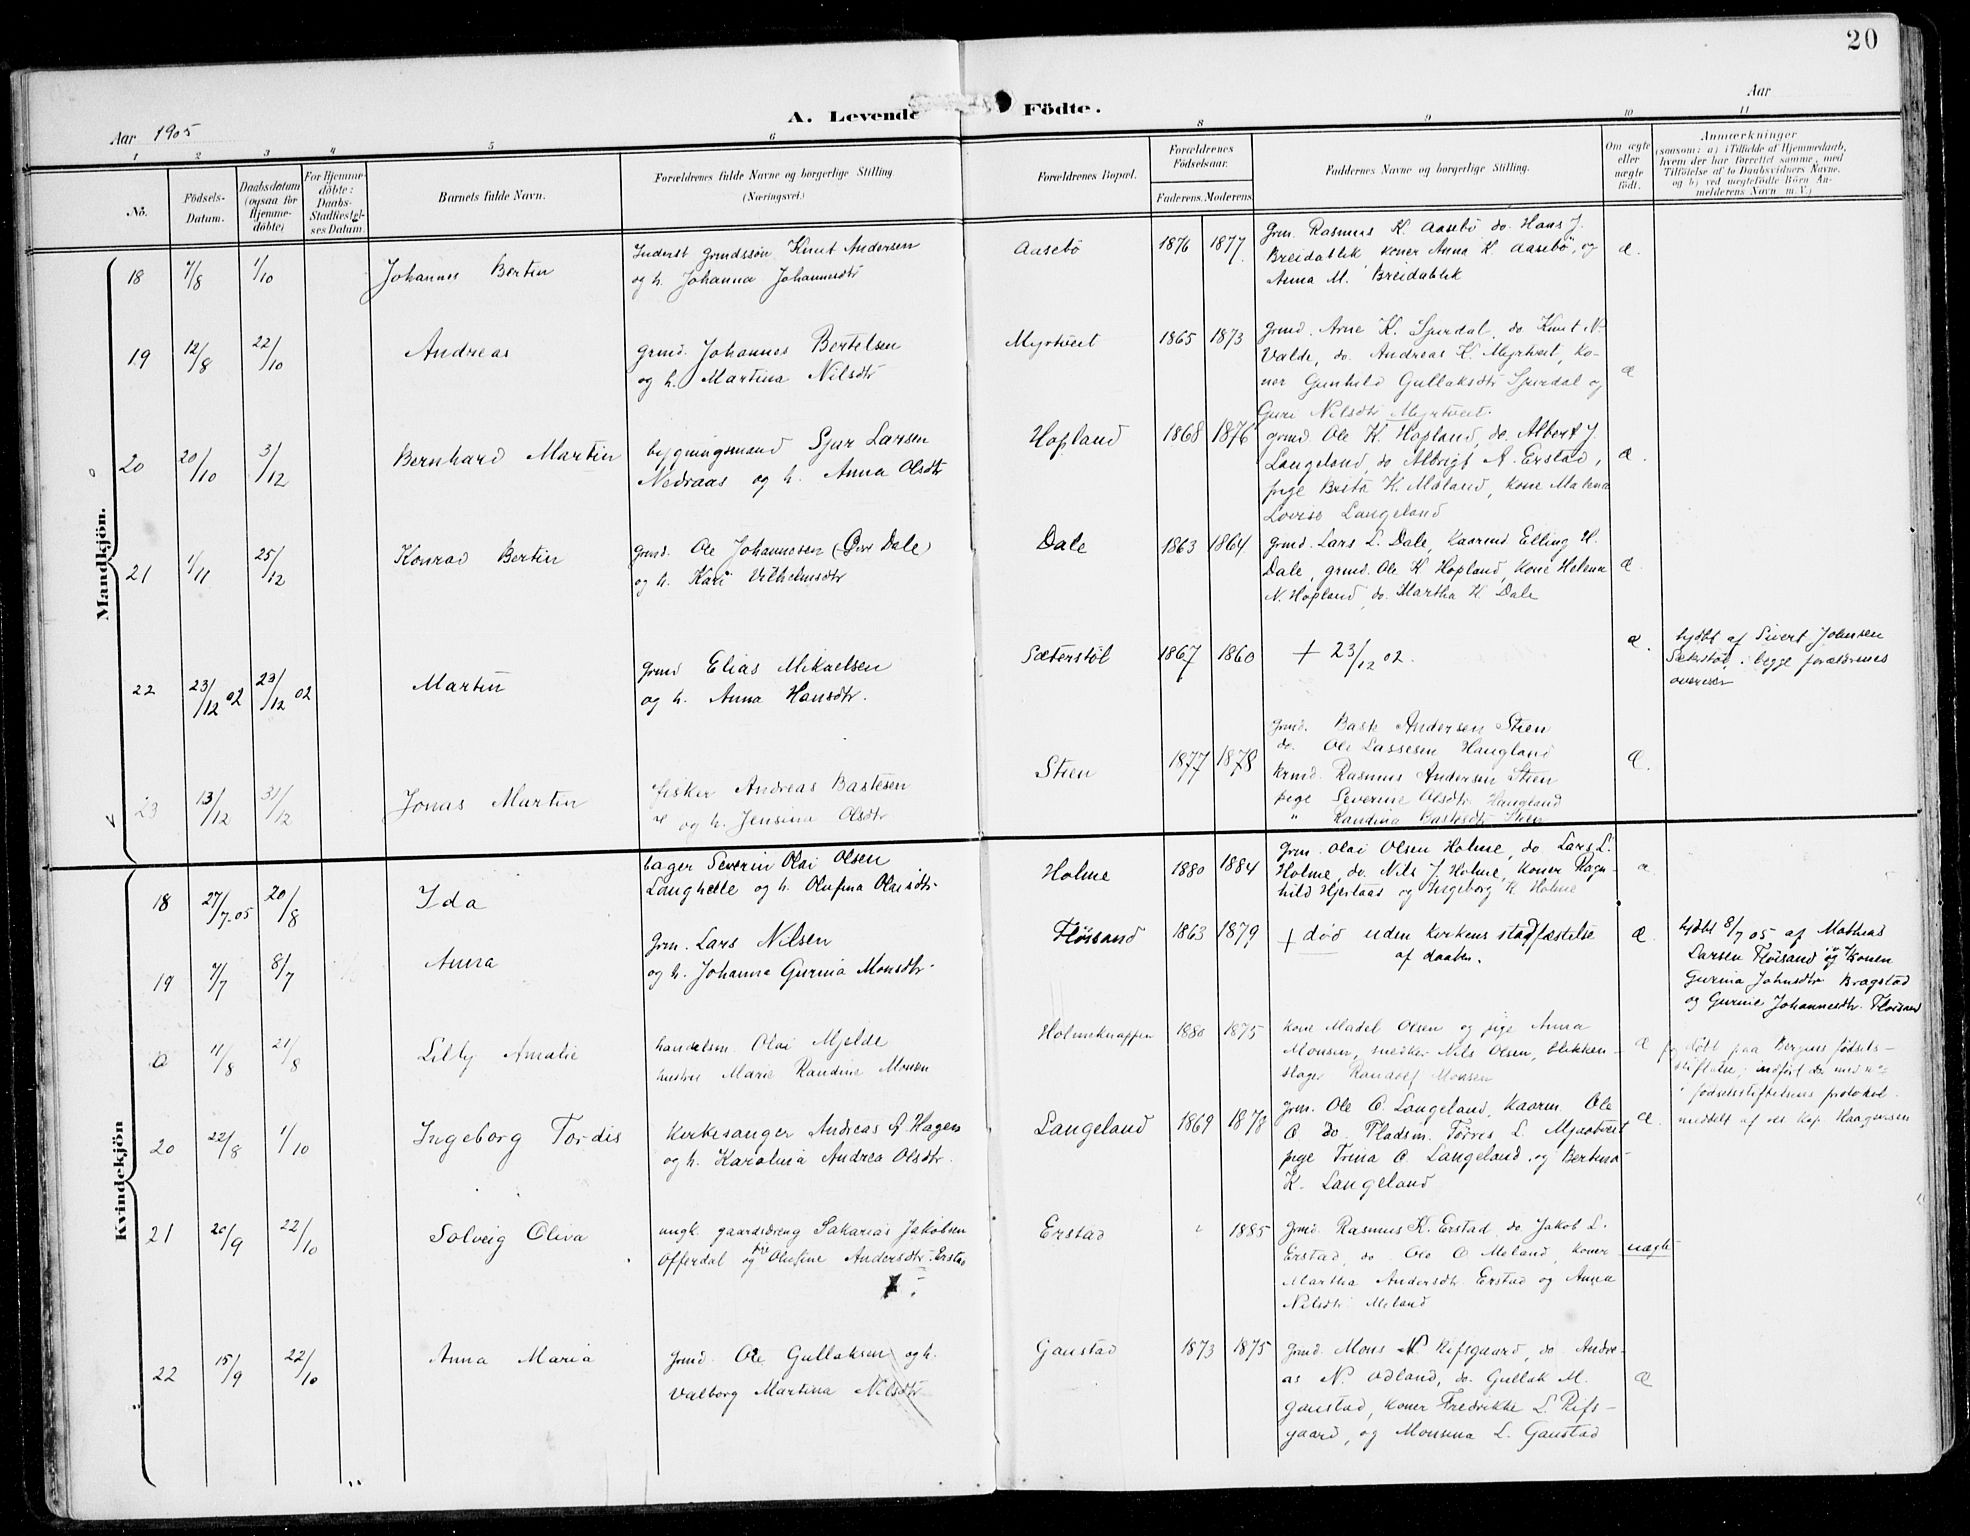 20
A. Levende Födte.
Aar 1905
Aar
1 2 3 4 5 6 8 9 10 11
No.
Födsels-Datum.
Daabsdatum (ogsaa for Hjemme-döbte)
For Hjemme-döbte: Daabs-Stadfæstelses Datum.
Barnets fulde Navn.
Forældrenes fulde Navne og borgerlige Stilling (Næringsvei.)
Forældrenes Bopæl.
Forældrenes Födselsaar.
Faderens. Moderens
Faddernes Navne og borgerlige Stilling.
Om ægte eller uægte födt.
Anmærkninger
(saasom: a) i Tilfælde af Hjemmedaab, hvem der har forrettet samme, med Tilföielse af to Daabsvidners Navne, og b) ved uægtefödte Börn Anmelderens Navn m. V.)
Mandkjön.
18 7/8 1/10 Johannes Bertin
Inderst grmdssøn Knut Andersen
og h. Johanna Johannesdtr
Aasebö 1876 1877
Grm. Rasmus K. Aasebö do. Hans J.
Breidablik koner Anna K. Aasebö, og
Anna M. Breidablik
æ.
19 12/8 22/10 Andreas
Grmd. Johannes Bertelsen
og h. Martina Nilsdtr
Myrtveit 1865 1873
Grmd. Arne K. Spurdal, do Knut N.
Valde, do. Andreas K. Myrtveit, Ko-
ner Gunhild Gullaksdtr Spurdal og
Guri Nilsdtr Myrtveit.
æ
20 20/10 3/12 Bernhard Martin
bygningsmand Sjur Larsen
Nedraas og h. Anna Olsdtr
Hopland 1868 1876
grmd Ole K. Hopland, do. Albert J.
Langeland, do Albrigt A. Erstad,
pige Brita K. Måland, kone Malena
Lovise Langeland
æ.
21 1/11 25/12 Konrad Bertin
Grmd. Ole Johannesen (Øvre Dale)
og h. Kari Vilhelmsdtr
Dale 1863 1864
grmd. Lars L. Dale, Kaarmd Elling H.
Dale, grmd. Ole K Hopland, kone Helena
N. Hopland, do. Martha K. Dale
æ.
22 23/12 02 23/12 02 Martin
Grmd Elias Mikaelsen
og h. Anna Hansdtr.
Sæterstöl 1867 1860
+ 23/12 02.
æ.
hjdbt af Sivert Johnsen
Sæterstöl, i begge forældrenes
overvær
23 13/12 31/12 Jonas Martin
fisker Andreas Bastesen
og h. Jensina Olsdtr
Stien 1877 1878
Grmd. Baste Andersen Stien
do. Ole Lassesen Haugland
krmd. Rasmus Andersen Stien
pige Severine Olsdtr Haugland
" Randina Bastesdtr Stien
Æ.
Kvindekjön
18 27/7.05 20/8 Ida
bager Severin Olai Olsen
Langhelle og h. Olufina Olaisdtr.
Holme 1880 1884
Grm. Olai Olsen Holme, do Lars L.
Holme, do. Nils J. Holme, koner Ragn-
hild Hjertaas og Ingeborg K Holme
æ
19 7/7 8/7 Anna
Grm. Lars Nilsen
og h. Johanna Gurina Monsdtr.
Flöisand 1863 1879
+ död uden kirkens stadfæstelse
af daaben.
Æ.
hjdbt 8/7 05 af Mathias
Larsen Flöisand og Konen
Gurina Johnsdtr Bragstad
og Gurine Johannesdtr Flöisand
11/8 21/8 Lilly Amalie
handelsm. Olai Mjelde
hustru Marie Randine Monsen
Holmeknappen 1880 1875
Kone Madel Olsen og pige Anna
Monsen, snedker Nils Olsen, blikken-
slager Randolf Monsen
Æ
döbt paa Bergens födsels-
stiftelse; indfört der med no
i födselsstiftelsens protokol.
meddelt af res. kap. Haagensen
20 22/8 1/10 Ingeborg Tordis
Kirkesanger Andreas A Hagen
og h. Karolina Andrea Olsdtr.
Langeland 1869 1878
Grm. Ole O. Langeland, Kaarm. Ole
O do. Pladsm. Torres L. Mjaatveit
pige Trina O. Langeland, og Bertina
K. Langeland
æ.
21 20/9 22/10 Solveig Oliva
ungk. gaardsdreng Sakarias Jakobsen
Offerdal og pie Olufine Andersdtr. Erstad
Erstad " 1885
Grmd. Rasmus K. Erstad, do. Jakob L.
Erstad, do. Ole O Meland, koner
Martha Andersdtr Erstad og Anna
Nilsdtr Meland
uægte
22 15/9 22/10 Anna Maria
Grmd. Ole Gullaksen og h.
Valborg Martina Nilsdtr
Gaustad 1873 1875
Grmd. Mons N. Rifsgaard, do. Andre-
as N. Odland, do. Gullak M.
Gaustad, koner Fredrikke L. Rifs-
gaard, og Monsina L. Gaustad
Æ